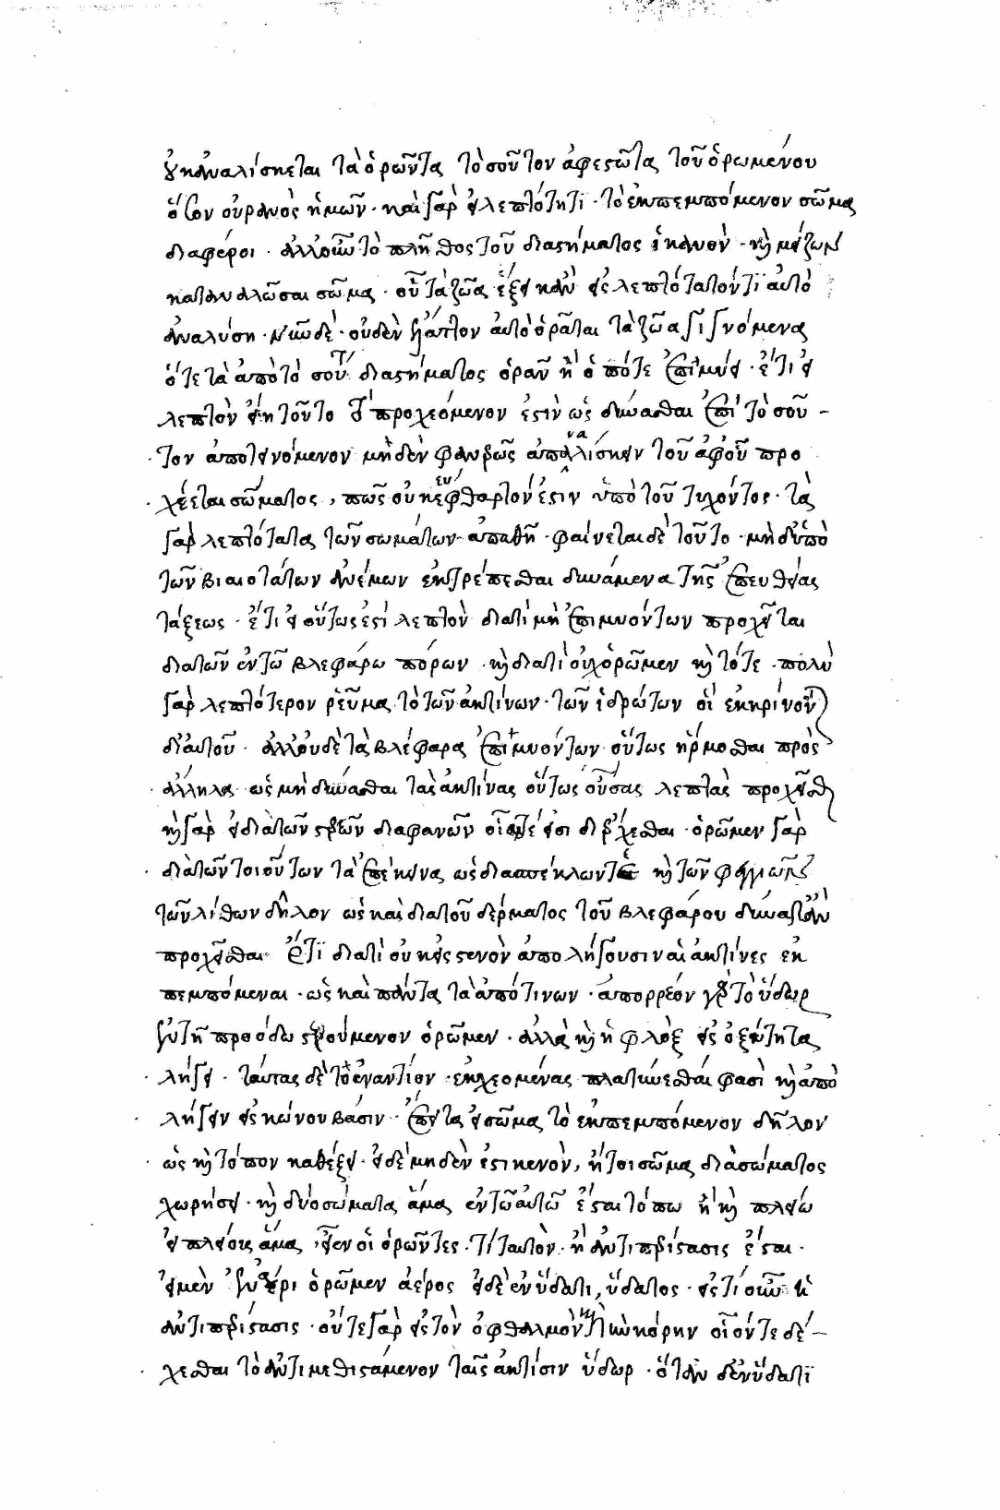 οὐκ ἀναλίσκεται τὰ ὁρῶντα τοσοῦτον ἀφεστῶτα τοῦ ὁρωμένου
ὅσον οὐρανὸς ἡμῶν· καὶ γὰρ εἰ λεπτότητι· τὸ ἐκπεμπόμενον σῶμα
διαφέροι· ἀλλ' οὖν τὸ πλῆθος τοῦ διαστήματος ἱκανὸν· καὶ μεῖζον
καταναλῶσαι σῶμα· οὗ τὰ ζῶα ἕξει κἂν εἰς λεπτότατόν τι αὐτὸ
ἀναλύση· νῦν δὲ· οὐδὲν ἧττον αὐτὸ ὁρᾶται τὰ ζῶα γιγνόμενα
ὅτε τὰ ἀπὸ τοσούτου διαστήματος ὁρᾶν ἢ ὁπότε ἐπιμύει· ἔτι εἰ
λεπτὸν εἴη τοῦτο τὸ προχεόμενον ἐστὶν ὡς δύνασθαι ἐπὶ τοσοῦ-
τον ἀποτεινόμενον μηδὲν φανερῶς ἀπαναλίσκειν τοῦ ἀφ' οὗ προ
χέεται σώματος, πῶς οὐκ εὔφθαρτόν ἐστιν ὑπὸ τοῦ τυχόντος· τὰ
γὰρ λεπτότατα τῶν σωμάτων εὐπαθῆ· φαίνεται δὲ τοῦτο· μηδ' ὑπὸ
τῶν βιαιοτάτων ἀνέμων ἐκτρέπεσθαι δυνάμενα τῆς ἐπ' εὐθείας
τάξεως· ἔτι εἰ οὕτως ἐστὶ λεπτὸν διατί μὴ ἐπιμυόντων προχεῖται
διὰ τῶν ἐν τῶ βλεφάρω πόρων· καὶ διατί οὐχ ὁρῶμεν καὶ τότε· πολὺ
γὰρ λεπτότερον ῥεῦμα τὸ τῶν ἀκτίνων· τῶν ἱδρώτων οἳ ἐκκρίνονται
δι' αὐτοῦ· ἀλλ' οὐδὲ τὰ βλέφαρα ἐπιμυόντων οὕτως ἥρμοσθαι πρὸς
ἄλληλα ὡς μὴ δύνασθαι τὰς ἀκτίνας οὕτως οὔσας λεπτὰς προχεῖσθαι
καὶ γὰρ εἰ διὰ τῶν στερεῶν διαφανῶν οἷαί τέ εἰσι διέρχεσθαι· ὁρῶμεν γὰρ
διὰ τῶν τοιούτων τὰ ἐπέκεινα ὡς διά τε καὶ τῶν
τῶν λίθων δῆλον ὡς καὶ διὰ τοῦ δέρματος τοῦ βλεφάρου δύναιντο ἂν
προχεῖσθαι· ἔτι διατί οὐκ εἰς στενὸν ἀπολήγουσιν αἱ ἀκτίνες ἐκ
πεμπόμεναι· ὡς καὶ πάντα τὰ ἀπό τινων· ἀπορρέον γὰρ τὸ ὕδωρ
ἐν τῆ προόδω στενούμενον ὁρῶμεν· ἀλλὰ καὶ ἡ φλὸξ εἰς ὀξύτητα
λήγει· ταύτας δὲ τοὐναντίον· ἐκχεομένας πλατύνεσθαί φασι καὶ ἀπο
λήγειν εἰς κώνου βάσιν· ἔπειτα εἰ σῶμα τὸ ἐκπεμπόμενον δῆλον
ὡς καὶ τόπον καθέξει· εἰ δὲ μηδέν ἐστι κενὸν, ἤτοι σῶμα διὰ σώματος
χωρήσει· καὶ δύο σώματα ἅμα ἐν τῶ αὐτῶ ἔσται τόπω ἢ καὶ πλείω
εἰ πλείους ἅμα εἶεν οἱ ὁρῶντες τὸ αὐτὸν· ἢ ἀντιπερίστασις ἔσται·
εἰ μὲν ἐν ἀέρι ὁρῶμεν ἀέρος εἰ δὲ ἐν ὕδατι, ὕδατος· εἰς τί οὖν ἡ
ἀντιπερίστασις· οὔτε γὰρ εἰς τὸν ὀφθαλμὸν ἢ τὴν κόρην οἷόν τε δέ-
χεσθαι τὸ ἀντιμεθιστάμενον ταῖς ἀκτῖσιν ὕδωρ· ὅταν δ' ἐν ὕδατι